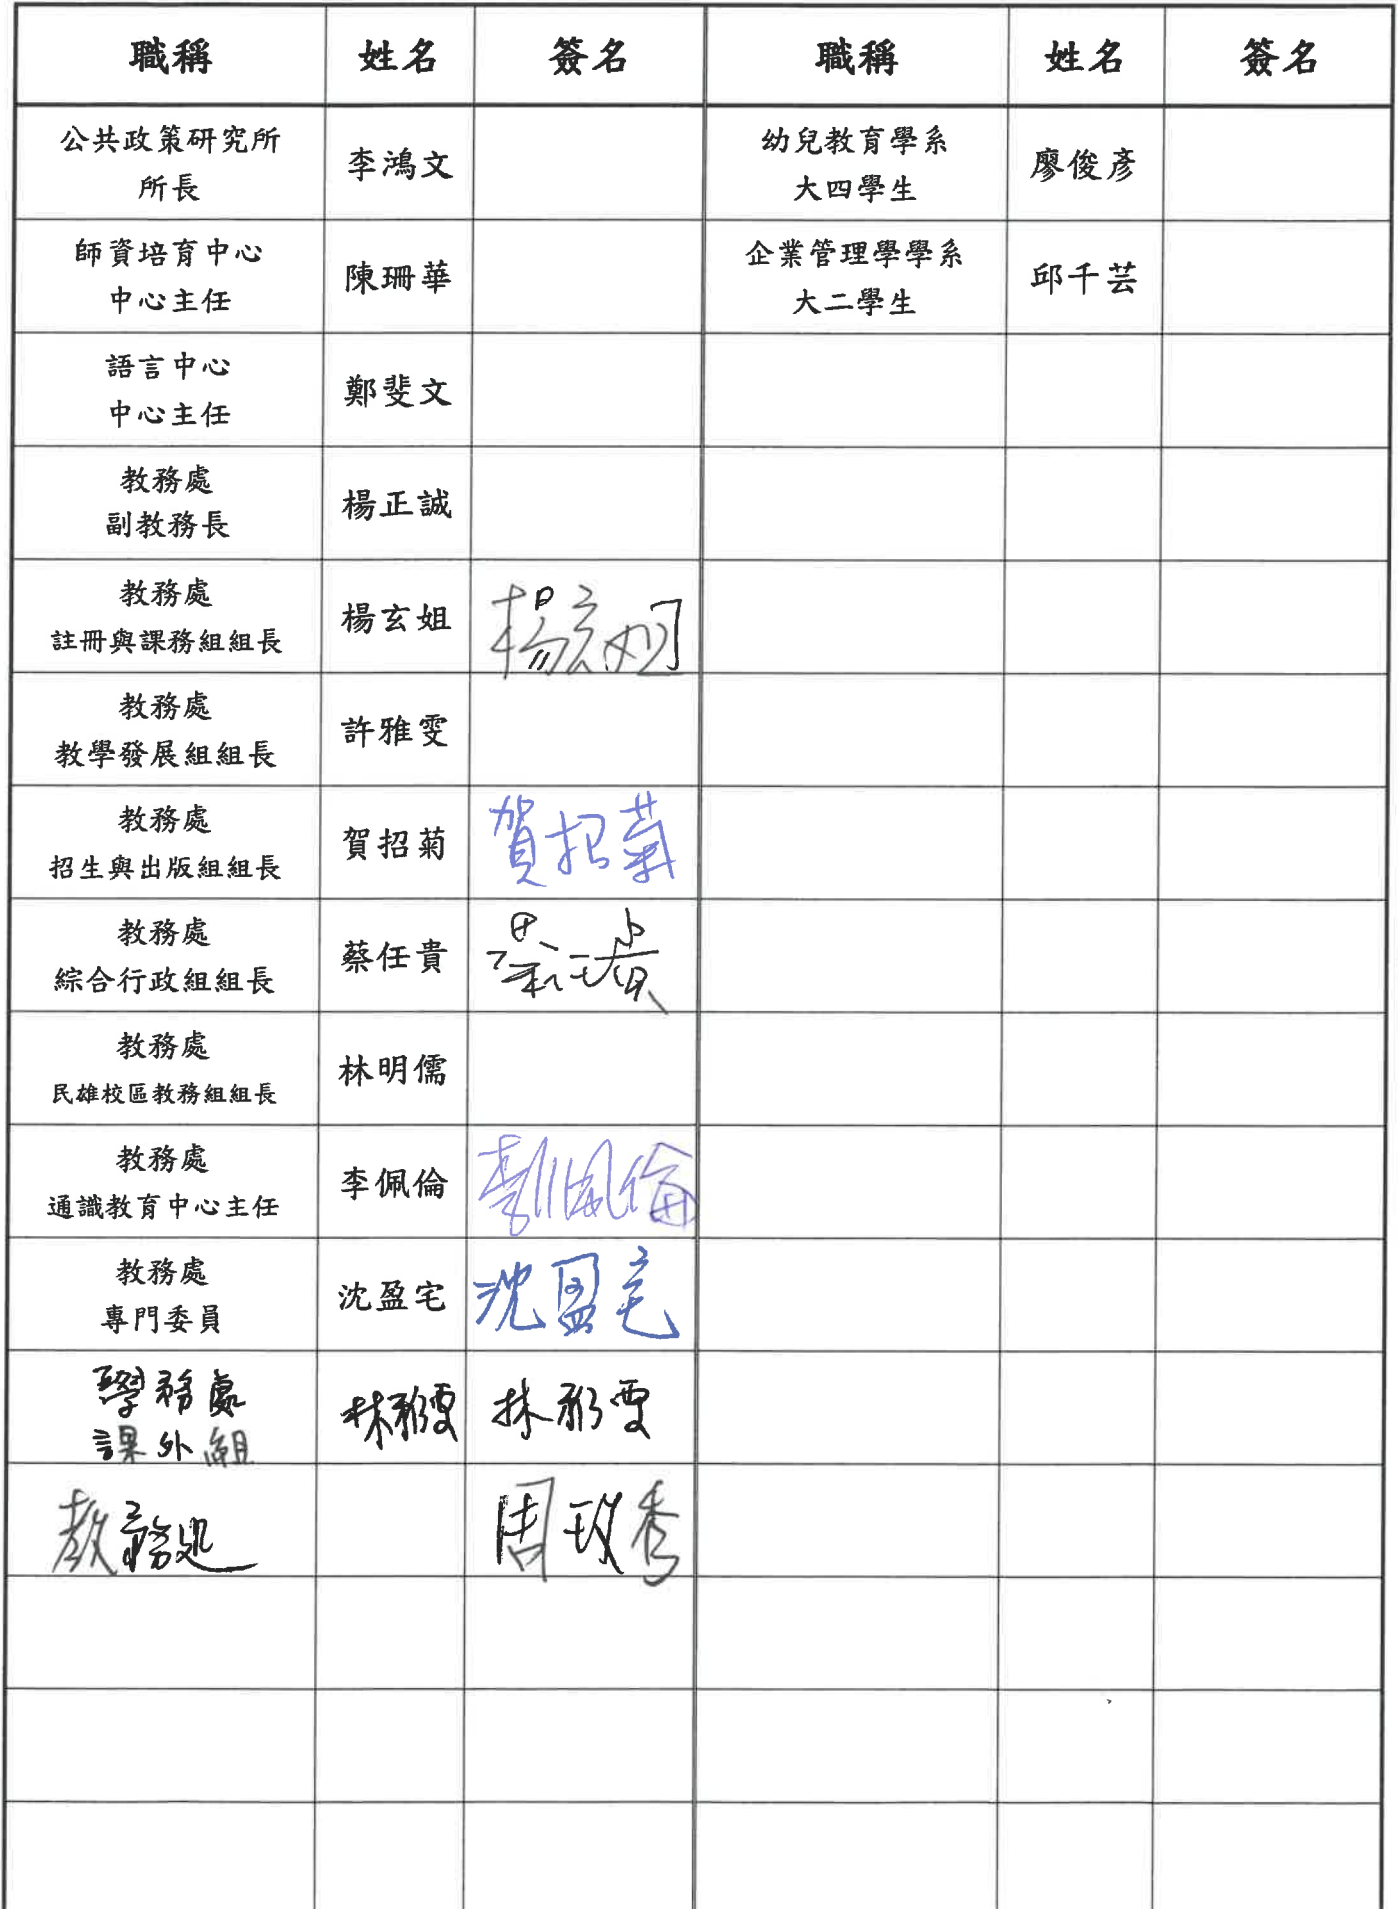 職稱 姓名 簽名 職稱 姓名 簽名
公共政策研究所
所長
李鴻文
幼兒教育學系
大四學生
廖俊彥
師資培育中心
中心主任
陳珊華
企業管理學學系
大二學生
邱千芸
語言中心
中心主任
鄭斐文
教務處
副教務長
楊正誠
教務處
註冊與課務組組長
楊玄姐
楊玄姐
教務處
教學發展組組長
許雅雯
教務處
招生與出版組組長
賀招菊
賀招菊
教務處
綜合行政組組長
蔡任貴
蔡任貴
教務處
民雄校區教務組組長
林明儒
教務處
通識教育中心主任
李佩倫
李佩倫
教務處
專門委員
沈盈宅
沈盈宅
學務處
課外組
林
林
教務処
周玫秀